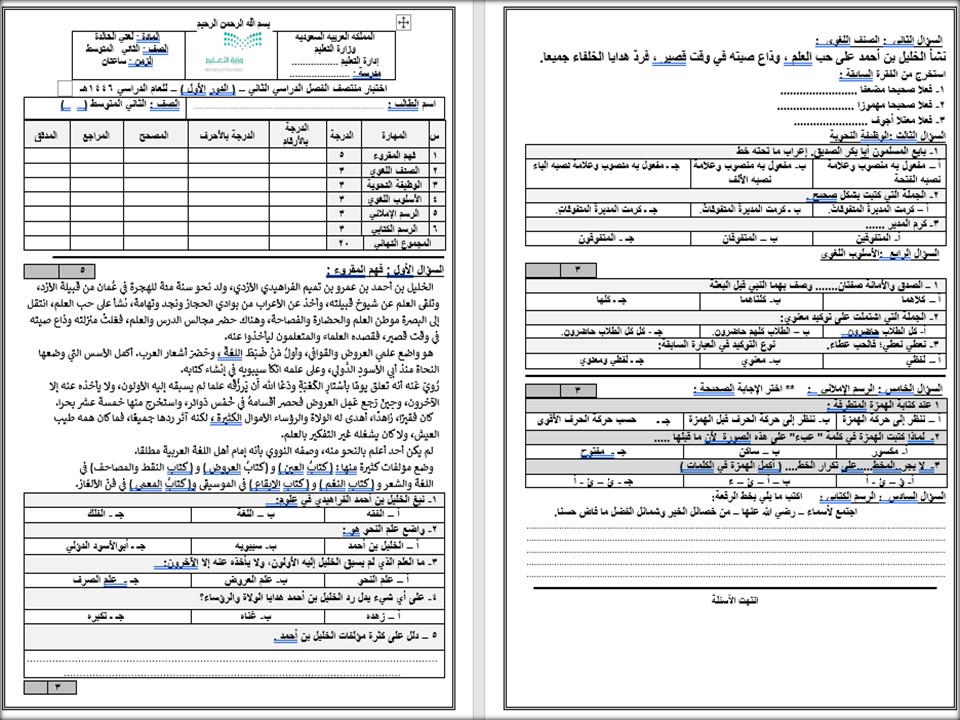 بسم الله الرحمن الرحيم
المملكة العربية السعودية
وزارة التعليم
إدارة التعليم ..................
مدرسة : ..................
وزارة التعليم
Ministry of Education
المادة : لغتي الخالدة
الصف : الثاني المتوسط
الزمن : ساعتان
اختبار منتصف الفصل الدراسي الثاني – ( الدور الأول ) – للعام الدراسي ١٤٤٦هـ
اسم الطالب : ..................
الصف : الثاني المتوسط ( )
س المهارة الدرجة الدرجة بالأرقام الدرجة بالأحرف المصحح المراجع المدقق
١ فهم المقروء ٥
٢ الصنف اللغوي ٣
٣ الوظيفة النحوية ٣
٤ الأسلوب اللغوي ٣
٥ الرسم الإملائي ٣
٦ الرسم الكتابي ٣
المجموع النهائي ٢٠
السؤال الأول : فهم المقروء :
٥
الخليل بن أحمد بن عمرو بن تميم الفراهيدي الأزدي، ولد نحو سنة مئة للهجرة في عُمان من قبيلة الأزد،
وتلقى العلم عن شيوخ قبيلته، وأخذ عن الأعراب من بوادي الحجاز ونجد وتهامة، نشأ على حب العلم، انتقل
إلى البصرة موطن العلم والحضارة والفصاحة، وهناك حضر مجالس الدرس والعلم، فعَلتْ منزلته وذاع صيته
في وقت قصير، فقصده العلماء والمتعلمون ليأخذوا عنه.
هو واضع علمي العروض والقوافي، وأول مَنْ ضَبَطَ اللغةَ ، وحَصَرَ أشعار العرب. أكمل الأسس التي وضعها
النحاة منذ أبي الأسود الدُّؤلي، وعلى علمه اتكأ سيبويه في إنشاء كتابه.
رُويَ عَنه أنه تعلق يومًا بأستَارِ الكَعْبَةِ ودَعَا اللهَ أن يَرزُقَه علما لم يسبقه إليه الأولون، ولا يأخذه عنه إلا
الآخرون، وحِينَ رَجع عَمِل العروض فحصر أقسامهُ في خَمْس دَوائر، واستخرج منها خمسة عشر بحرا.
كان فقيرًا، زاهدًا، أهدى له الولاة والرؤساء الأموال الكثيرة ، لكنه آثر ردها جميعًا، فما كان همه طيب
العيش، ولا كان يشغله غير التفكير بالعلم.
لم يكن أحد أعلم بالنحو منه، وصفه النووي بأنه إمام أهل اللغة العربية مطلقا.
وضع مؤلفات كثيرة منها: ( كتابُ العين ) و ( كتابُ العروض ) و( كتاب النقط والمصاحف) في
اللغة والشعر و ( كتاب النغم ) و( كتاب الإيقاع ) في الموسيقى و( كتابُ المعمى ) في فنّ الألغاز.
١- نبغ الخليل بن أحمد الفراهيدي في علوم:
أ – الفقه ب – اللغة جـ - الفلك
٢- واضع علم النحو هو :
أ – الخليل بن أحمد ب- سيبويه جـ - أبوالأسود الدؤلي
٣- ما العلم الذي لم يسبق الخليل إليه الأولون، ولا يأخذه عنه إلا الآخرون:
أ – علم النحو ب- علم العروض جـ - علم الصرف
٤- على أي شيء يدل رد الخليل بن أحمد هدايا الولاة والرؤساء؟
أ – زهده ب- غناه جـ - تكبره
٥ – دلل على كثرة مؤلفات الخليل بن أحمد .
..................
..................
٣
السؤال الثاني : الصنف اللغوي :
نشأ الخليل بن أحمد على حب العلم ، وذاع صيته في وقت قصير ، فردّ هدايا الخلفاء جميعا.
استخرج من الفقرة السابقة :
١- فعلا صحيحا مضعفا ..................
٢- فعلا صحيحا مهموزا ..................
٣- فعلا معتلا أجوف ..................
السؤال الثالث :الوظيفة النحوية
١- بايع المسلمون أبا بكر الصديق. إعراب ما تحته خط
أ – مفعول به منصوب وعلامة نصبه الفتحة ب- مفعول به منصوب وعلامة نصبه الألف جـ - مفعول به منصوب وعلامة نصبه الياء
٢- الجملة التي كتبت بشكل صحيح .
أ – كرمت المديرة المتفوقات. ب – كرمت المديرةُ المتفوقاتُ. جـ - كرمت المديرةُ المتفوقاتِ.
٣- كرم المدير ......
أ- المتفوقين ب – المتفوقان جـ - المتفوقون
السؤال الرابع :الأسلوب اللغوي
٣
١ – الصدق والأمانة صفتان....... وصف بهما النبي قبل البعثة
أ – كلاهما ب- كلتاهما جـ - كلها
٢- الجملة التي اشتملت على توكيد معنوي:
أ- كل الطلاب حاضرون ب – الطلاب كلهم حاضرون. جـ - كل كل الطلاب حاضرون.
٣- تعطي تعطي؛ فالحب عطاء. نوع التوكيد في العبارة السابقة:
أ – لفظي ب- معنوي جـ - لفظي ومعنوي
السؤال الخامس : الرسم الإملائي : ** اختر الإجابة الصحيحة :
٣
١ عند كتابة الهمزة المتطرفة :
أ – ننظر إلى حركة الهمزة ب- ننظر إلى حركة الحرف قبل الهمزة جـ - حسب حركة الحرف الأقوى
٢- لماذا كتبت الهمزة في كلمة " عبء" على هذه الصورة لأن ما قبلها .....
أ – مكسور ب – ساكن جـ - مفتوح
٣- لا يجر...المخط.....على تكرار الخط.... ( أكمل الهمزة في الكلمات )
أ – ؤ – ئ - أ ب – أ – ئ – ء جـ - ئ – ئ - أ
السؤال السادس : الرسم الكتابي : اكتب ما يلي بخط الرقعة:
اجتمع لأسماء – رضي الله عنها – من خصائل الخير وشمائل الفضل ما فاض حسنا.
..................
..................
..................
..................
..................
انتهت الأسئلة